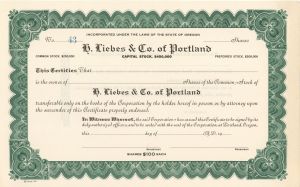 INCORPORATED UNDER THE LAWS OF THE STATE OF OREGON
No. 43 Shares
H. Liebes & Co. of Portland
COMMON STOCK, $200,000 CAPITAL STOCK, $400,000 PREFERRED STOCK, $200,000
This Certifies That
is the owner of Shares of the Common Stock of
H. Liebes & Co. of Portland
transferable only on the books of the Corporation by the holder hereof in person or by attorney upon
the surrender of this Certificate properly endorsed.
In Witness Whereof, the said Corporation has caused this Certificate to be signed by its
duly authorized officers, and to be sealed with the seal of the Corporation at Portland, Oregon,
this day of A.D. 19
SHARES $100 EACH